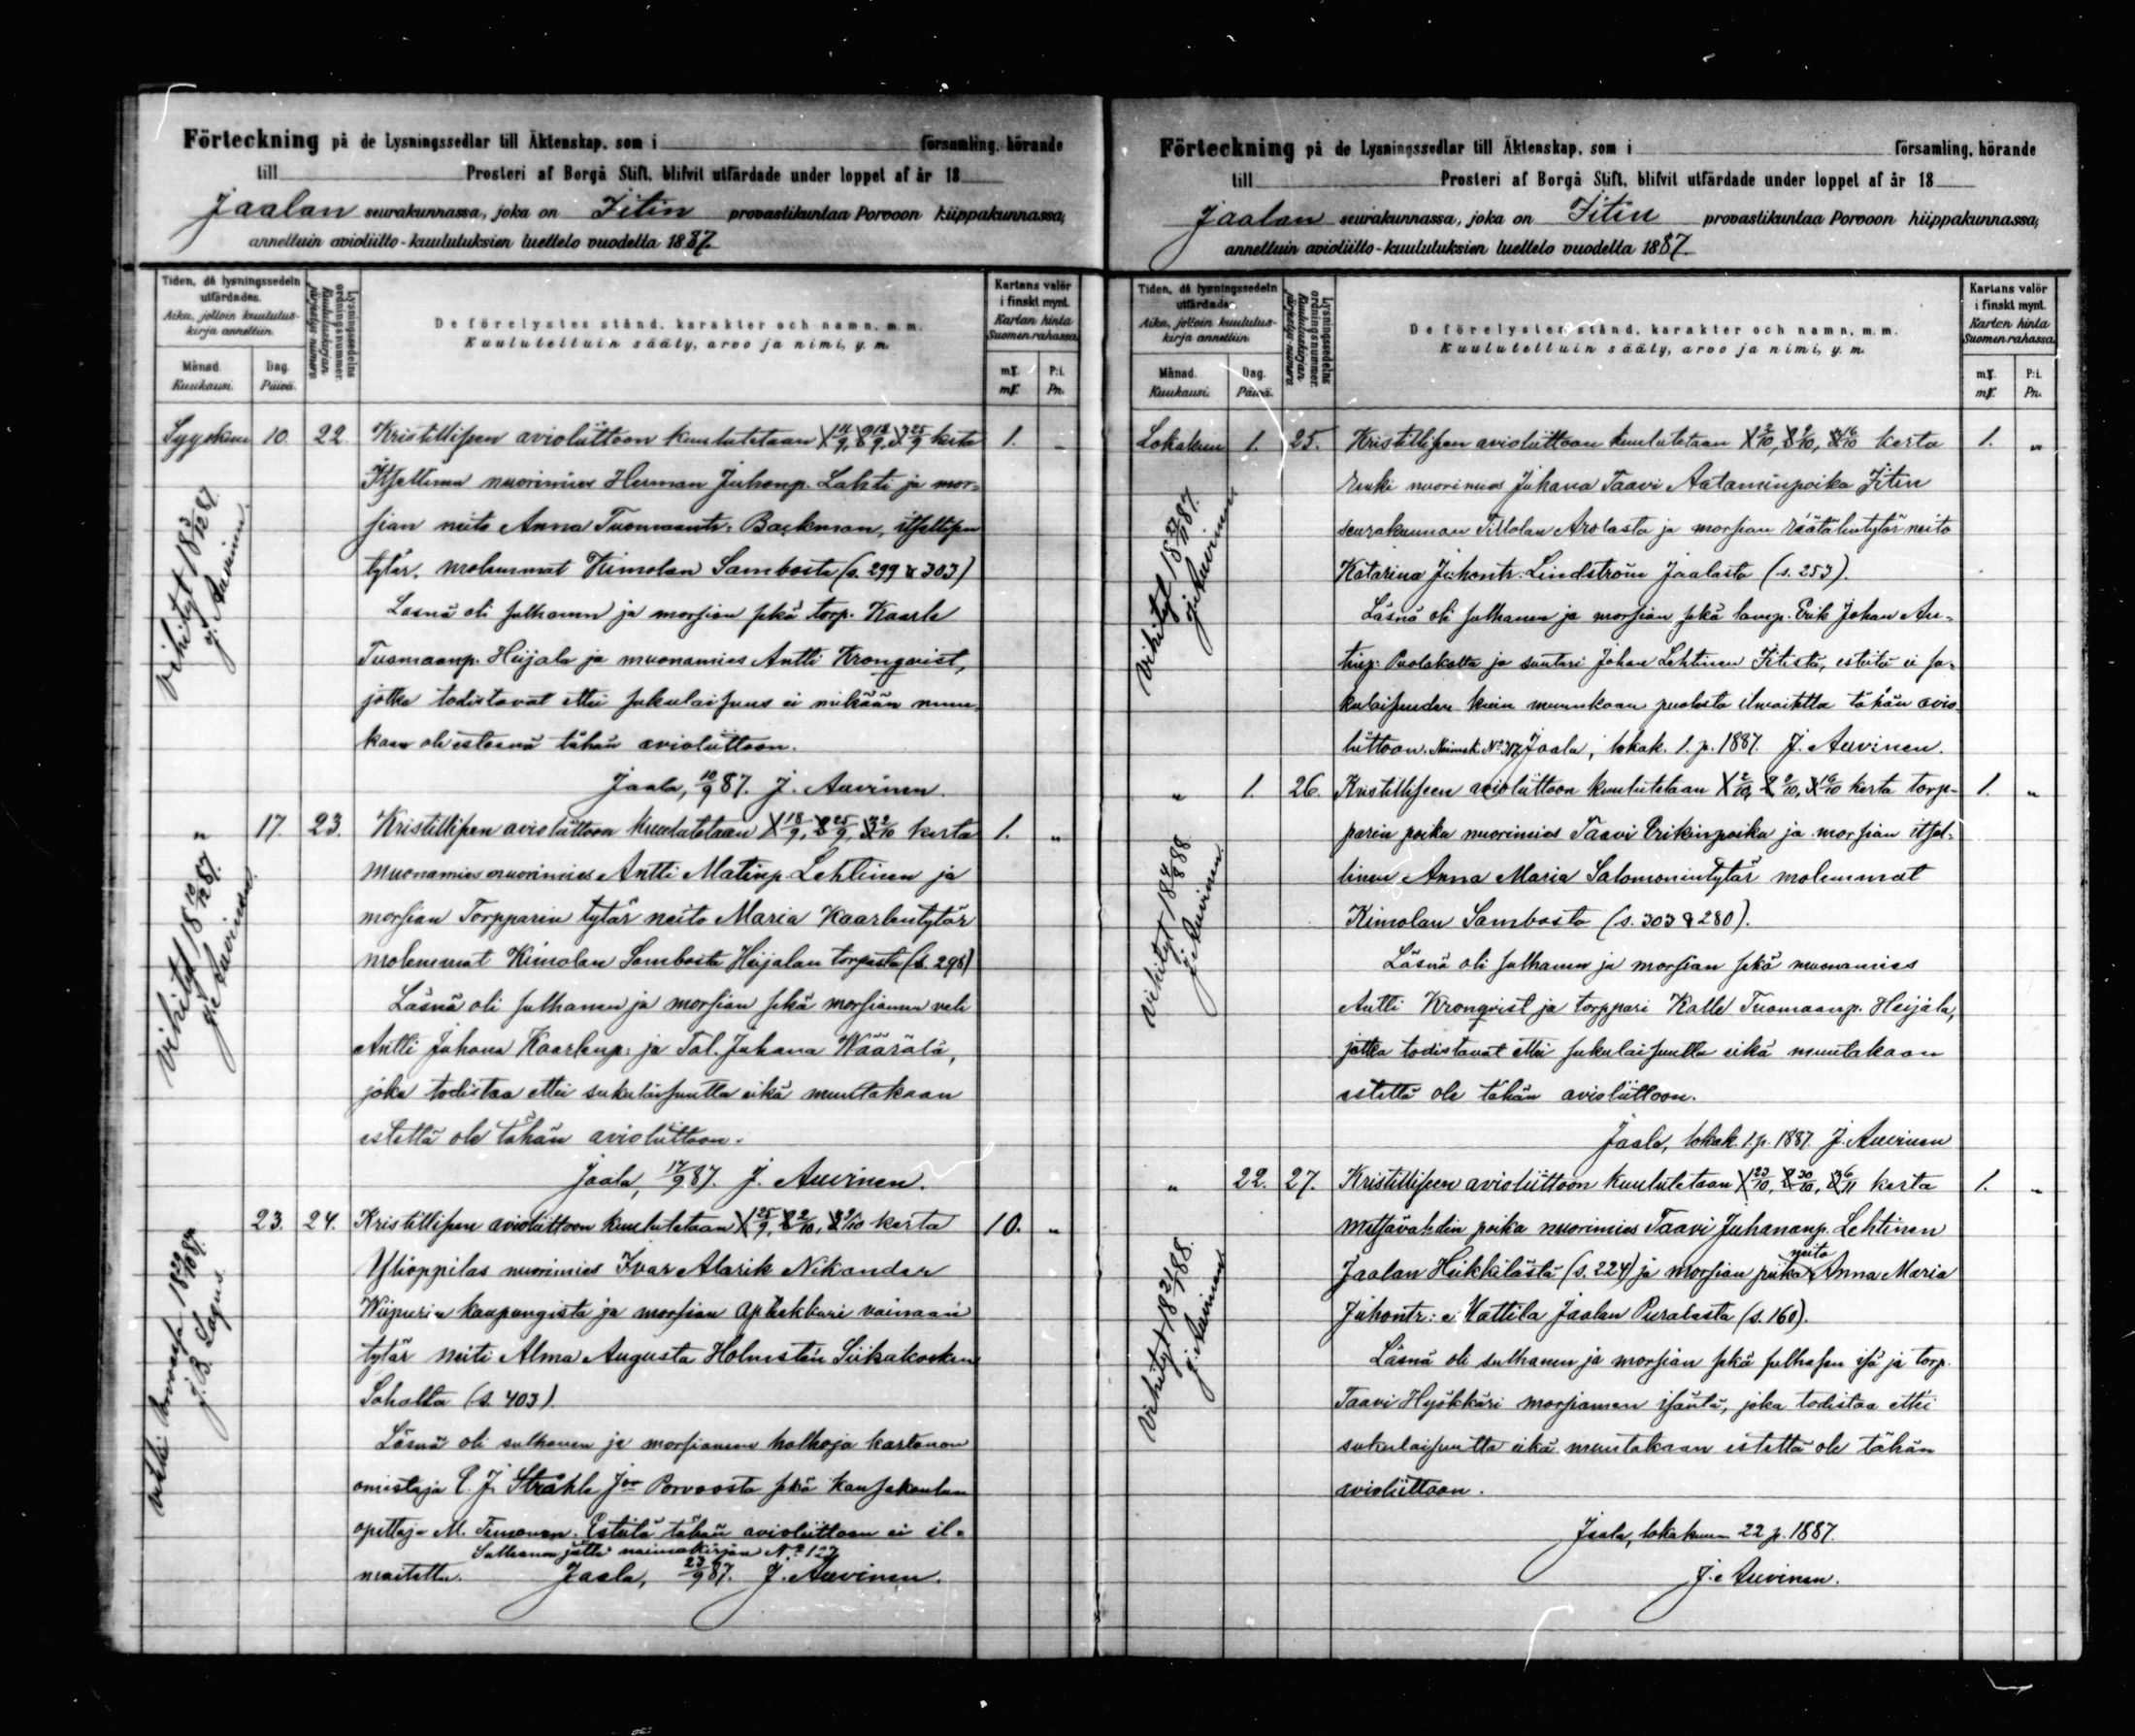 Förteckning på de Lysningssedlar till Äktenskap, som i församling, hörande
till Prosteri af Borgå Stift, blifvit utfärdade under loppet af år 18
Jaalan seurakunnassa, joka on Iitin provastikuntaa Porvoon hiippakunnassa,
annettuin avioliitto-kuulutuksien luettelo vuodelta 1887.
Tiden, då lysningssedeln utfärdades.
Aika, jolloin kuulutus-kirja annettiin.
Månad. Kuukausi.
Dag. Päivä.
Lysningssedelns ordningsnummer.
Kuulutuskirjan järjestys-numero
De förelystes stånd, karakter och namn, m. m.
Kuulutettuin sääty, arvo ja nimi, y. m.
Kartans valör i finskt mynt.
Kartan hinta Suomen rahassa
mƒ. mƒ.
P:i. Pn.
Syyskuu 10. 22. Kristillisen avioliittoon kuulutetaan 1 11/9, 2 18/9, 3 25/9 kerta 1. „
Itsellinen nuorimies Herman Juhonp. Lahti ja mor-
sian neito Anna Tuomaantr: Backman, itsellisen
tytär, molemmat Kimolan Sambosta (s. 299 & 303)
Läsnä oli sulhanen ja morsian sekä torp. Kaarle
Tuomaanp. Heijala ja muonamies Antti Kronqvist,
jotka todistavat ettei sukulaisuus ei mikään muu-
kaan ole esteenä tähän avioliittoon.
Jaala, 10/9 87. J. Auvinen.
Vihityt 18 87. J. Auvinen.
„ 17. 23. Kristillisen avioliittoon kuulutetaan 1 18/9, 2 25/9, 3 2/10 kerta 1. „
muonamies nuorimies Antti Matinp. Lehtinen ja
morsian Torpparin tytär neito Maria Kaarlentytär
molemmat Kimolan Sambosta Heijalan torpasta (s. 298)
Läsnä oli sulhanen ja morsian sekä morsiamen veli
Antti Juhana Kaarlenp: ja Tal. Juhana Wäärälä,
joka todistaa ettei sukulaisuutta eikä muutakaan
estettä ole tähän avioliittoon.
Jaala, 17/9 87. J. Auvinen.
Vihityt 18 87. J. Auvinen.
23. 24. Kristillisen avioliittoon kuulutetaan 1 25/9, 2 2/10, 3 9/10 kerta 10. „
Ylioppilas nuorimies Ivar Alarik Nikander
Wiipurin kaupungista ja morsian aptekkari vainaan
tytär neiti Alma Augusta Holmstén Siikakosken
Saholta (s. 403).
Läsnä oli sulhanen ja morsiamen holhoja kartanon
omistaja C. J. Stråhle Jor Porvoosta sekä kansakoulun
opettaja M. Timonen. Estettä tähän avioliittoon ei il-
Sulhanen jätti naimakirjan No 127
moitettu. Jaala, 23/9 87. J. Auvinen.
J. B. Lagus.
Förteckning på de Lysningssedlar till Äktenskap, som i församling, hörande
till Prosteri af Borgå Stift, blifvit utfärdade under loppet af år 18
Jaalan seurakunnassa, joka on Iitin provastikuntaa Porvoon hiippakunnassa,
annettuin avioliitto-kuulutuksien luettelo vuodelta 1887.
Tiden, då lysningssedeln utfärdades.
Aika, jolloin kuulutus-kirja annettiin.
Månad. Kuukausi.
Dag. Päivä.
Lysningssedelns ordningsnummer.
Kuulutuskirjan järjestys-numero
De förelystes stånd, karakter och namn, m. m.
Kuulutettuin sääty, arvo ja nimi, y. m.
Kartans valör i finskt mynt.
Kartan hinta Suomen rahassa
mƒ. mƒ.
P:i. Pn.
Lokakuu 1. 25. Kristillisen avioliittoon kuulutetaan 1 2/10, 2 9/10, 3 16/10 kerta 1. „
Renki nuorimies Juhana Taavi Aataminpoika Iitin
seurakunnan Tillolan Arolasta ja morsian räätälintytär neito
Katarina Juhontr: Lindström Jaalasta (s. 253).
Läsnä oli sulhanen ja morsian sekä lamp. Erik Johan An-
tinp: Puolakalta ja suutari Johan Lehtinen Iitistä, estettä ei su-
kulaisuuden kuin muunkaan puolesta ilmoitettu tähän avio-
liittoon. Jaala, lokak. 1. p. 1887. J. Auvinen.
Vihityt 18 87. J. Auvinen.
„ 1. 26. Kristilliseen avioliittoon kuulutetaan 1 2/10, 2 9/10, 3 16/10 kerta torp- 1. „
parin poika nuorimies Taavi Erikinpoika ja morsian itsel-
linen Anna Maria Salomonintytär molemmat
Kimolan Sambosta (s. 303 & 280).
Läsnä oli sulhanen ja morsian sekä muonamies
Antti Kronqvist ja torppari Kalle Tuomaanp. Heijala,
jotka todistavat ettei sukulaisuutta eikä muutakaan
estettä ole tähän avioliittoon.
Jaala, lokak. 1. p. 1887. J. Auvinen
Vihityt 18 88. J. Auvinen.
„ 22. 27. Kristilliseen avioliittoon kuulutetaan 1 23/10, 2 30/10, 3 6/11 kerta 1. „
metsävahdin poika nuorimies Taavi Juhananp. Lehtinen
neito
Jaalan Heikkilästä (s. 224) ja morsian piika Anna Maria
Juhontr: Mattila Jaalan Puralasta (s. 160).
Läsnä oli sulhanen ja morsian sekä sulhasen isä ja torp.
Taavi Hyökkäri morsiamen isäntä, joka todistaa ettei
sukulaisuutta eikä muutakaan estettä ole tähän
avioliittoon.
Jaala, lokakuun 22 p. 1887.
J. Auvinen.
Vihityt 18 88. J. Auvinen.